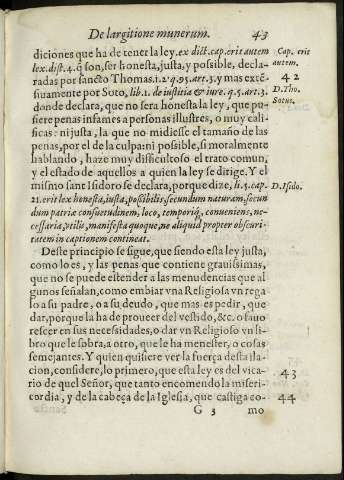 De largitione munerum. 43
diciones que ha de tener la ley. ex dict. cap. erit autem
lex. dist. 4. q̃ son, ser honesta, justa, y possible, decla-
radas por sancto Thomas. 1. 2. q. 95. art. 3. y mas extẽ-
siuamente por Soto, lib. 1. de iustitia & iure. q. 5. art. 3.
donde declara, que no sera honesta la ley, que pu-
siere penas infames a personas illustres, o muy cali-
ficas: ni justa, la que no midiesse el tamaño de las
penas, por el de la culpa: ni possible, si moralmente
hablando, haze muy difficultoso el trato comun,
y el estado de aquellos a quien la ley se dirige. Y el
mismo sant Isidoro se declara, porque dize, li. 5. cap.
21. erit lex honesta, iusta, possibilis, secundum naturam, secun
dum patriæ consuetudinem, loco, temporiq́, conueniens, ne-
cessaria, vtilis, manifesta quoque, ne aliquid propter obscuri-
tatem in captionem contineat.
Deste principio se sigue, que siendo esta ley justa,
como lo es, y las penas que contiene grauissimas,
que no se puede estender a las menudencias que al
gunos señalan, como embiar vna Religiosa vn rega
lo a su padre, o a su deudo, que mas es pedir, que
dar, porque la ha de proueer del vestido, &c. o fauo
rescer en sus necessidades, o dar vn Religioso vn li-
bro que le sobra, a otro, que le ha menester, o cosas
semejantes. Y quien quisiere ver la fuerça desta ila-
cion, considere, lo primero, que esta ley es del vica-
rio de quel Señor, que tanto encomendo la miseri-
cordia, y de la cabeça de la Iglesia, que castiga co-
G 3 mo
Cap. erit
autem.
42
D. Tho.
Sotus.
D. Isido.
43
44